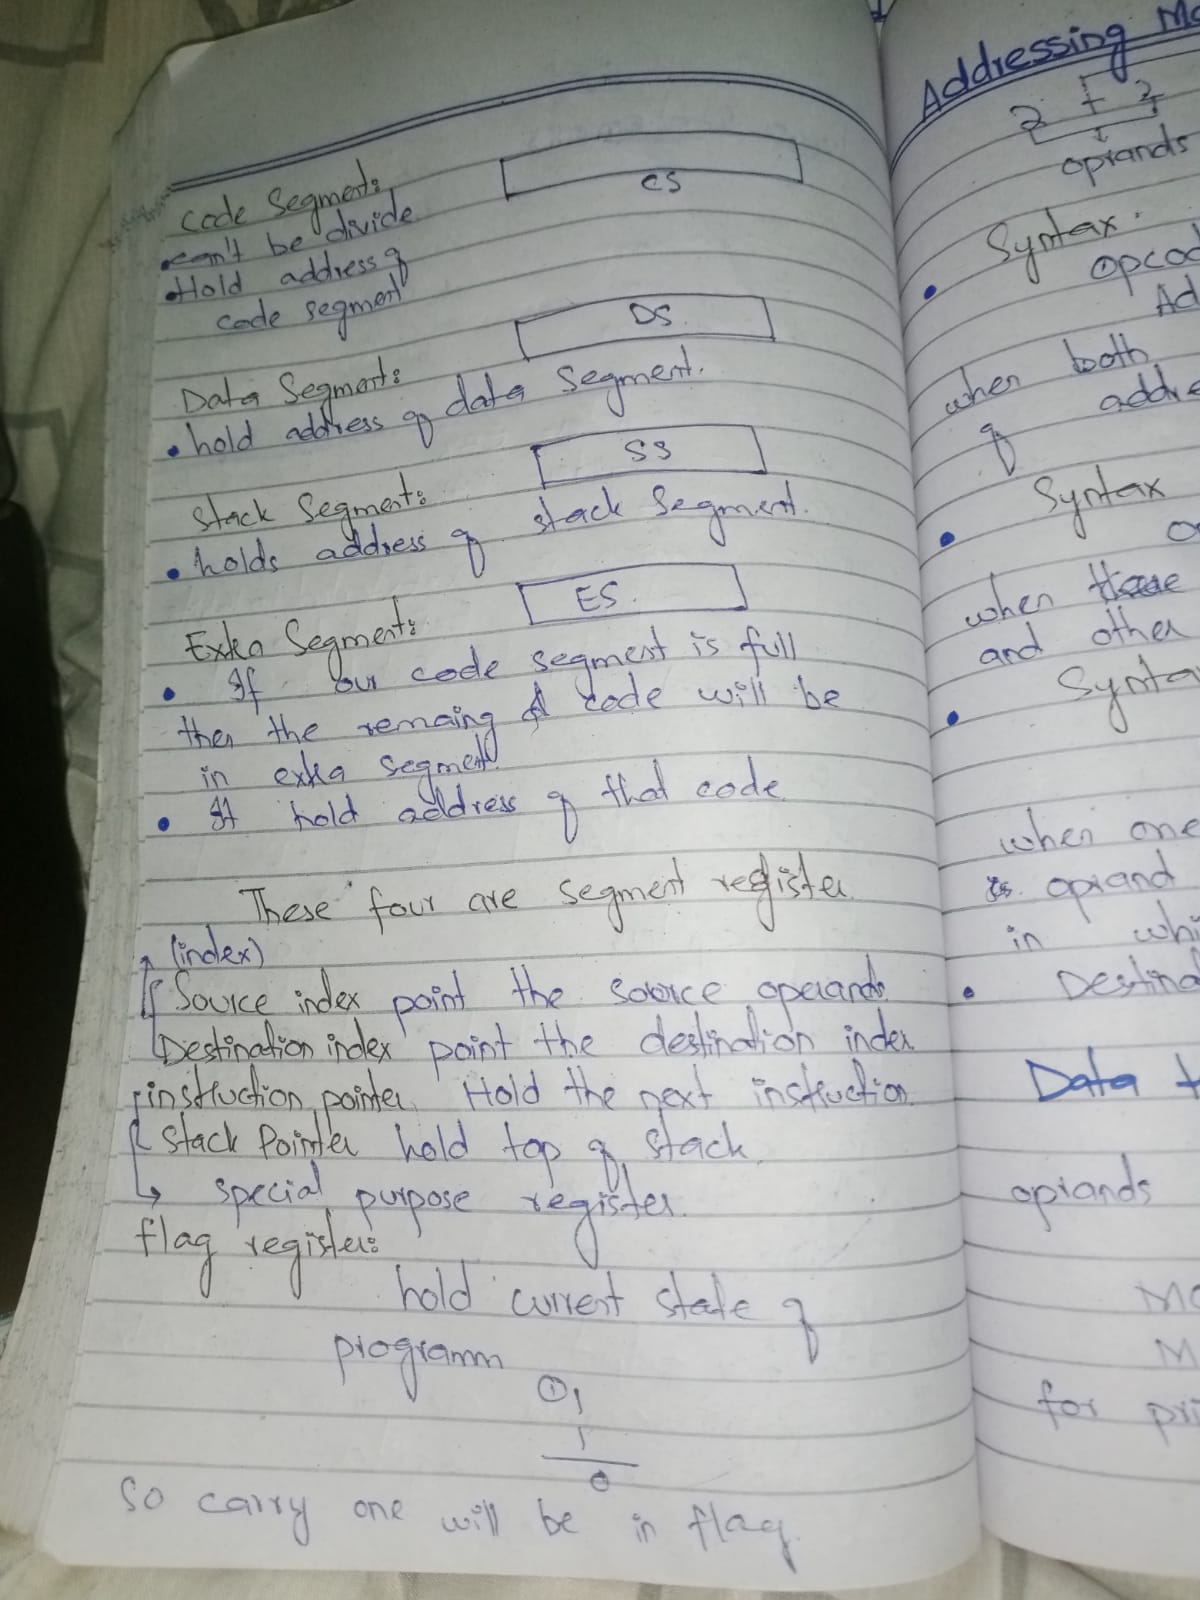 Code Segment:
CS
can't be divide
Hold address of
code segment
DS
Data Segment:
hold address of data Segment.
SS
Stack Segment:
holds address of stack Segment.
ES.
Extra Segment:
If our code segment is full
then the remaing code will be
in extra segment
It hold address of that code
These four are segment register
(index)
Source index point the source operands
Destination index point the destination index
instruction pointer Hold the next instruction
Stack Pointer hold top of stack
special purpose register.
flag register:
hold current state of
programm
1 1
1
0
So carry one will be in flag.
Addressing Mo
2 + 2
oprands
Syntax.
opcod
Ad
when both
addre
of
Syntax
when
and other
Synta
when one
oprand
in whi
Destina
Data t
oprands
Mo
M
for pri